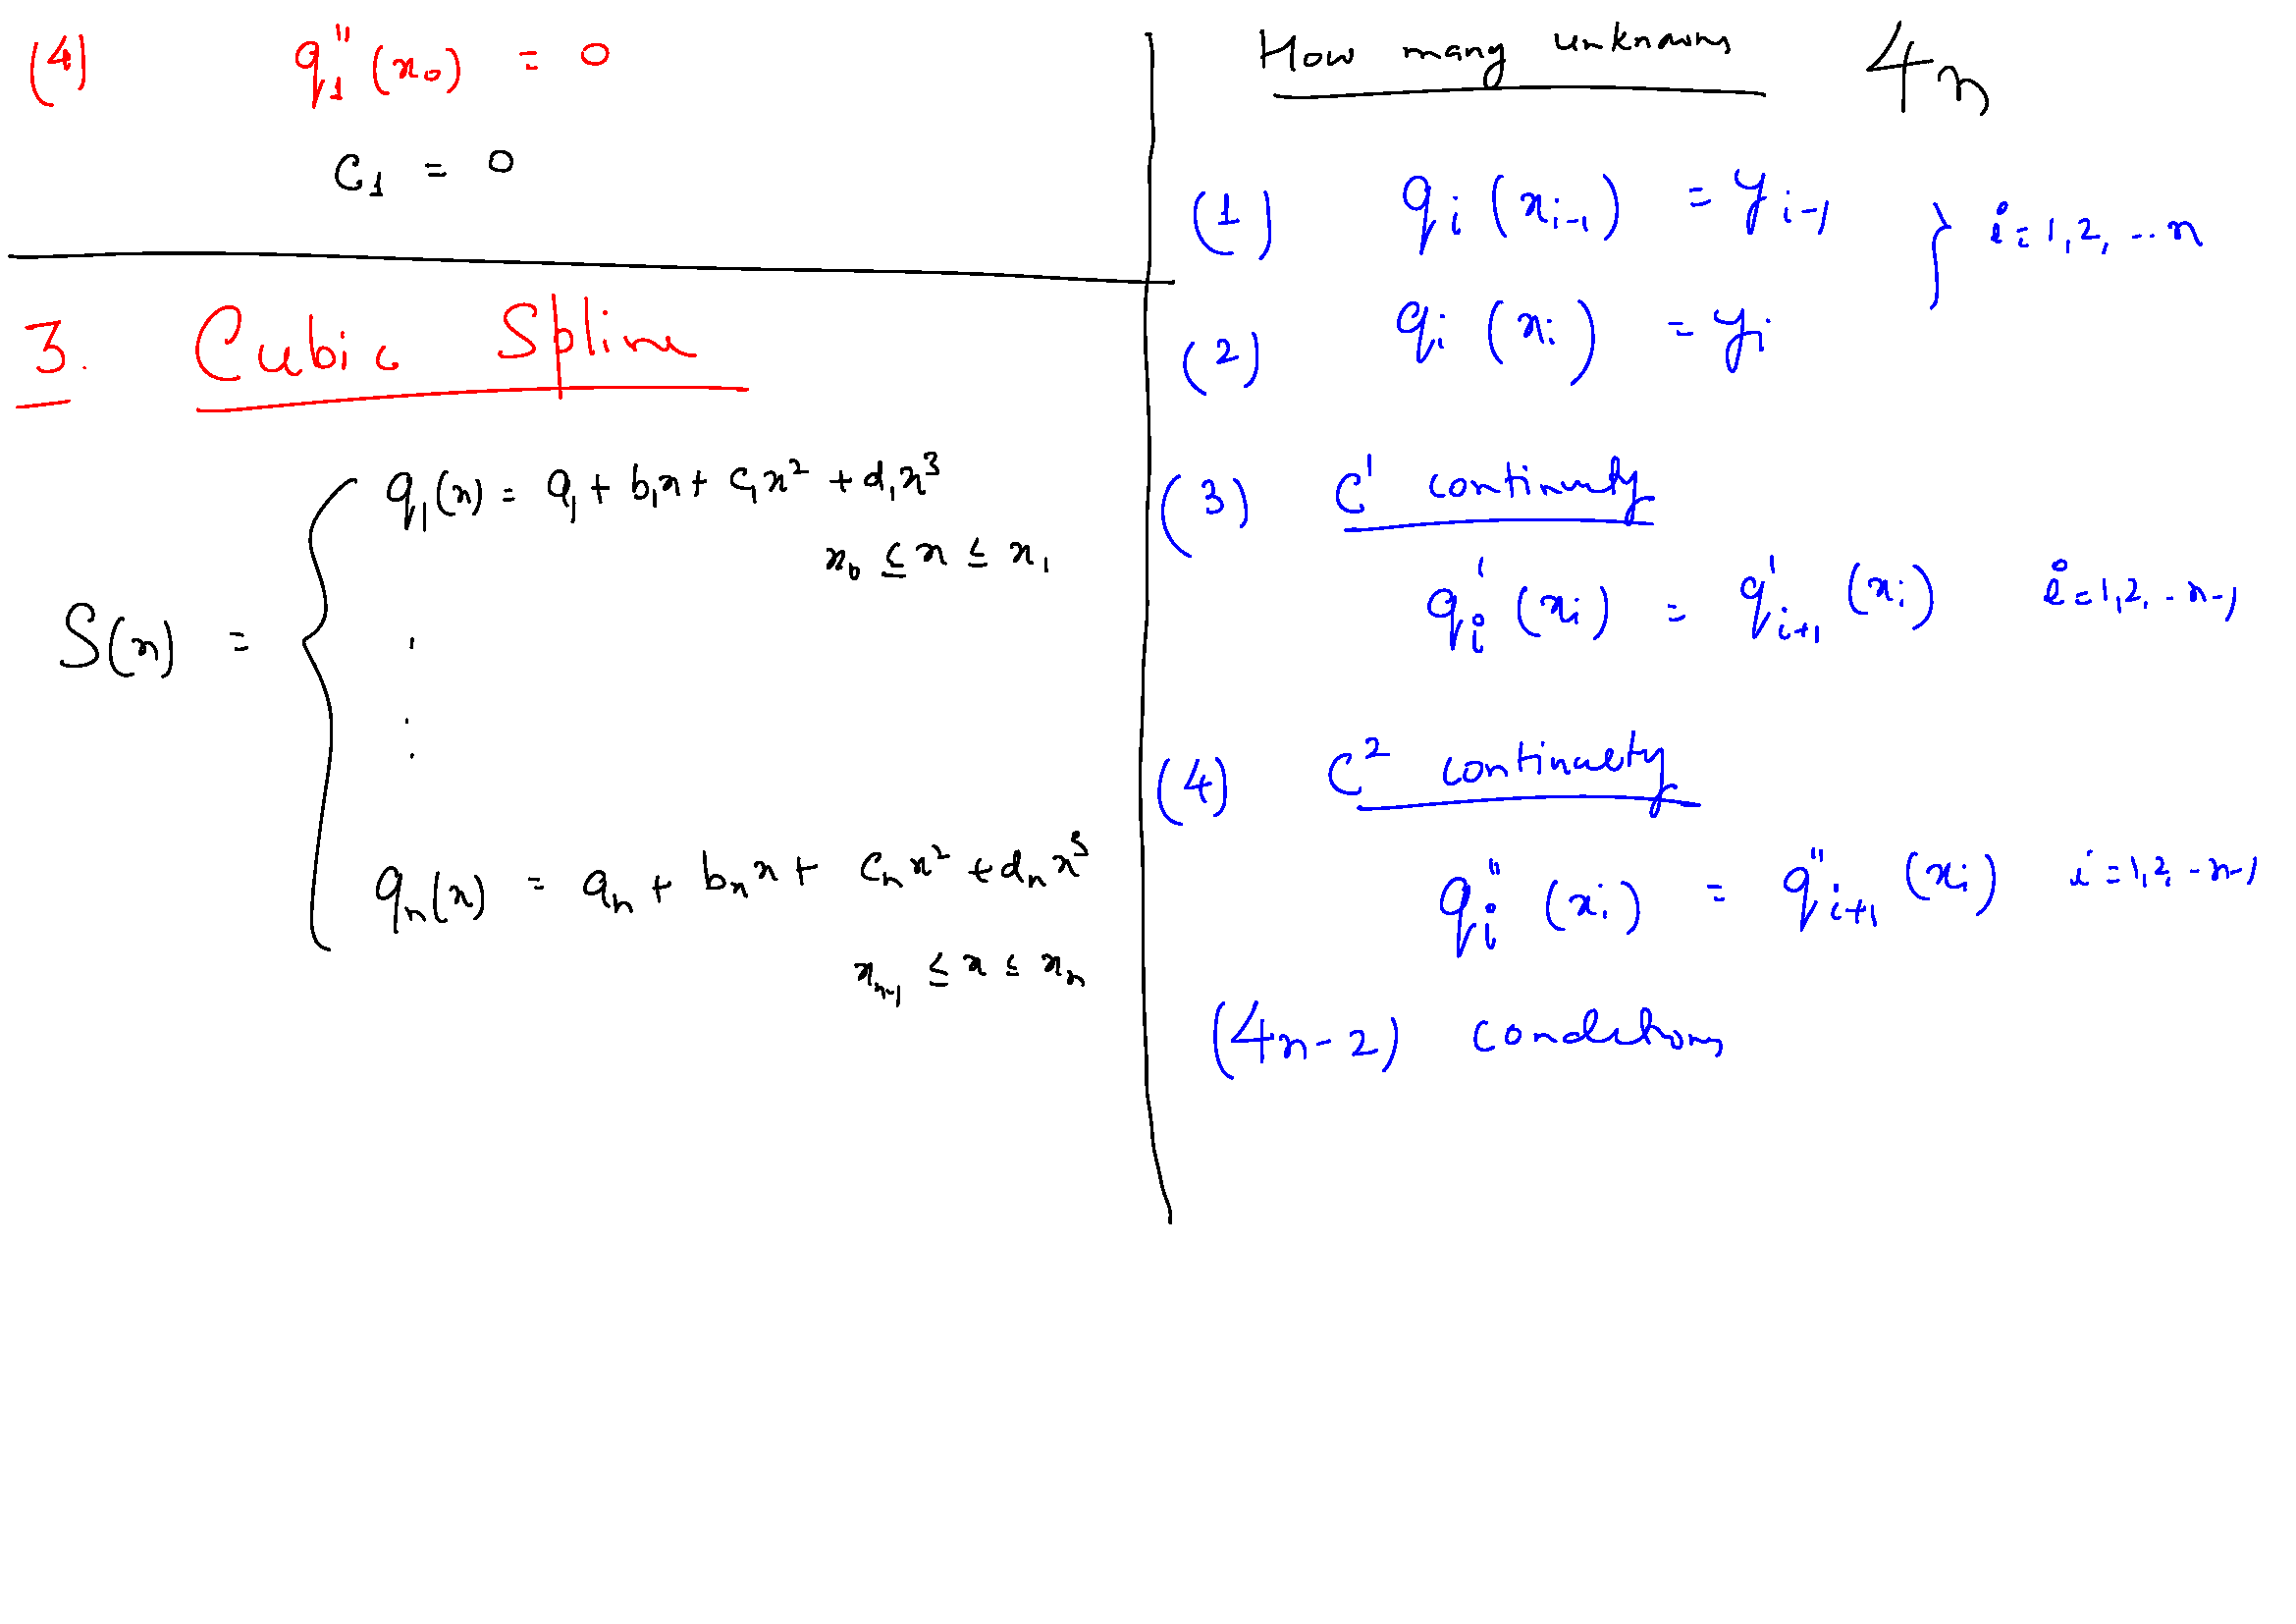 (4) q₁''(x₀) = 0
c₁ = 0
3. Cubic Spline
S(x) = {
q₁(x) = a₁ + b₁x + c₁x² + d₁x³
x₀ ≤ x ≤ x₁
.
.
.
qₙ(x) = aₙ + bₙx + cₙx² + dₙx³
xₙ₋₁ ≤ x ≤ xₙ
How many unknowns 4n
(1) qᵢ(xᵢ₋₁) = yᵢ₋₁ } i = 1, 2, ... n
(2) qᵢ(xᵢ) = yᵢ
(3) C¹ continuity
qᵢ'(xᵢ) = q'ᵢ₊₁(xᵢ) i = 1, 2, -- n-1
(4) C² continuity
qᵢ''(xᵢ) = q''ᵢ₊₁(xᵢ) i = 1, 2, -- n-1
(4n-2) conditions